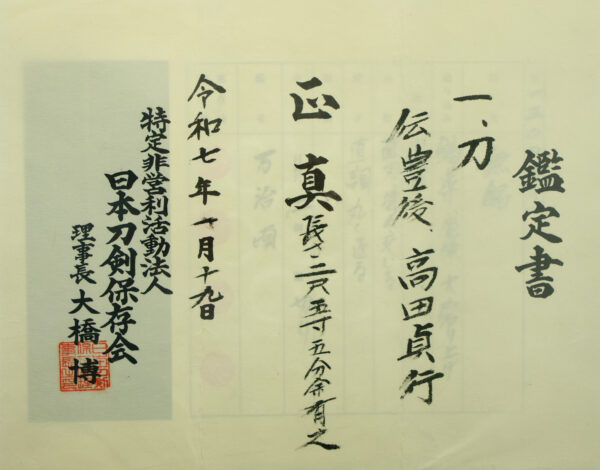 鑑定書
一、刀
伝豊後、高田貞行
正真
長サ二尺五寸五分余有之
令和七年 月十九日
特定非営利活動法人
日本刀剣保存会
理事長 大橋 博
万治頃